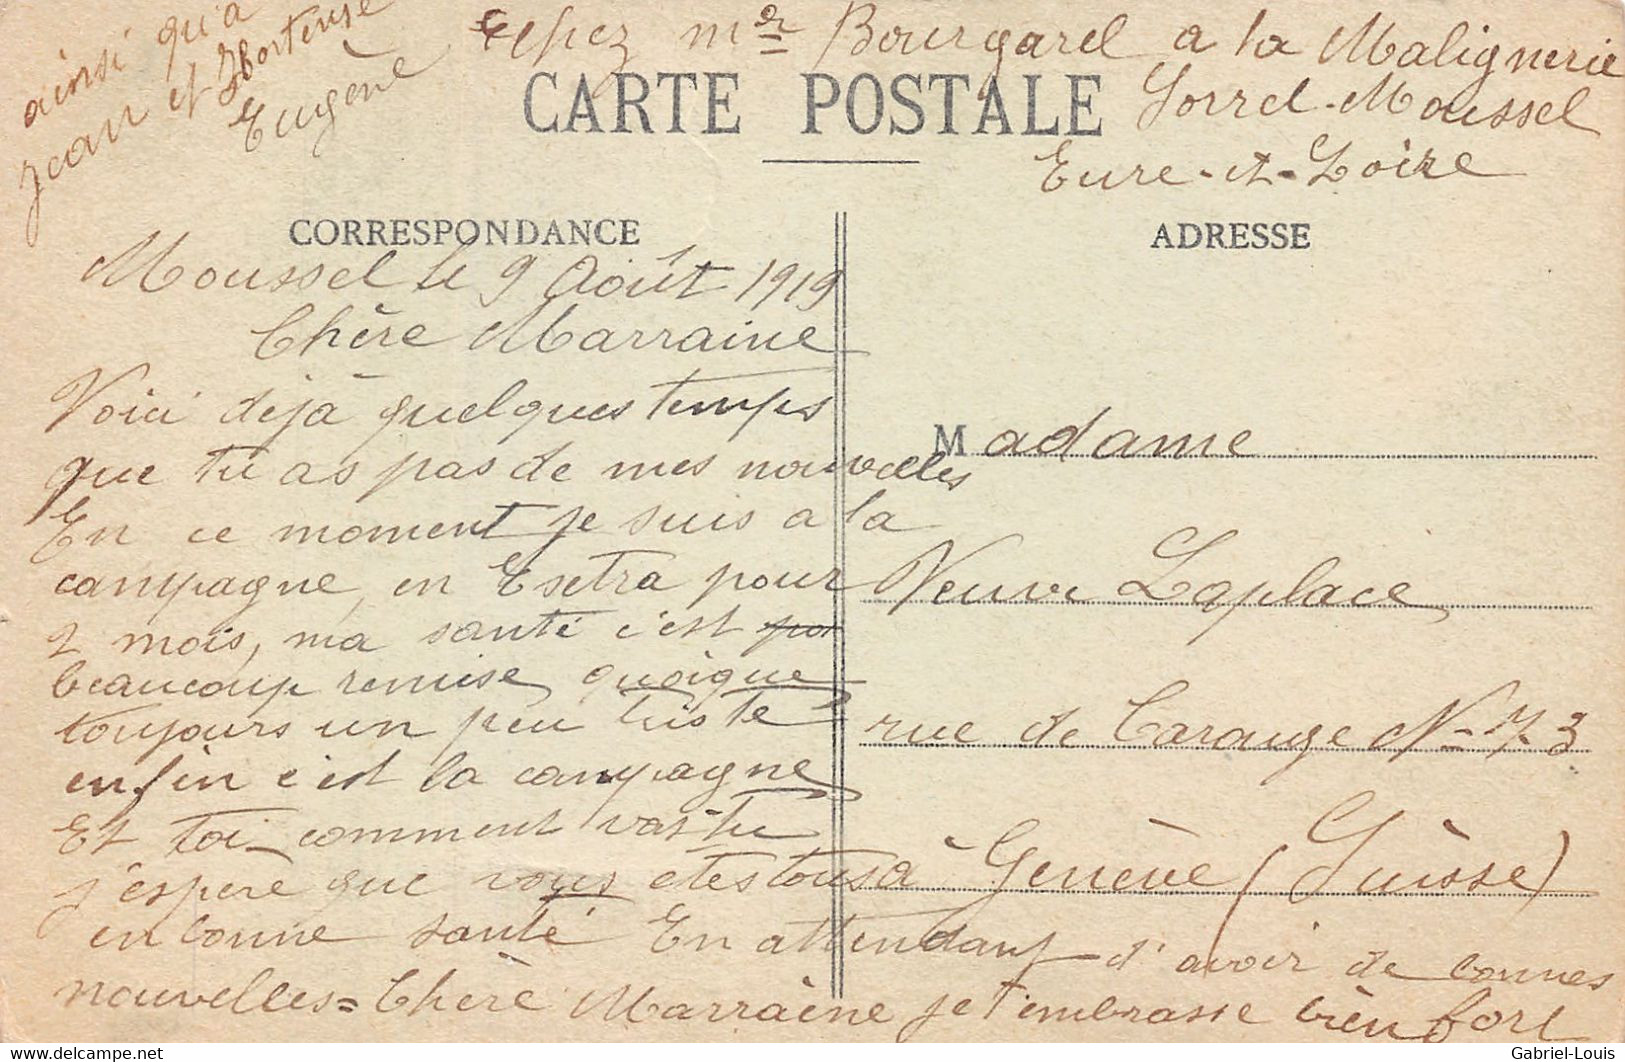 chez Mr Bourgarel a la Malignerie
Sorrel-Moussel
Eure-et-Loire
CARTE POSTALE
CORRESPONDANCE
ADRESSE
Moussel le 9 Août 1919
Chère Marraine
Voici déjà quelques temps
que tu as pas de mes nouvelles
En ce moment je suis a la
campagne, en Esetra pour
2 mois, ma santé c'est
beaucoup remise quoique
toujours un peu triste
enfin c'est la campagne
Et toi comment vas-tu
j'espère que vous etes tous
en bonne santé En attendant d'avoir de bonnes
nouvelles = Chère Marraine je t'embrasse bien fort
ainsi qu'a
Jean et Hortense
Eugène
Madame
Veuve Laplace
rue de Carouge N- 73
à Genève (Suisse)
Gabriel-Louis